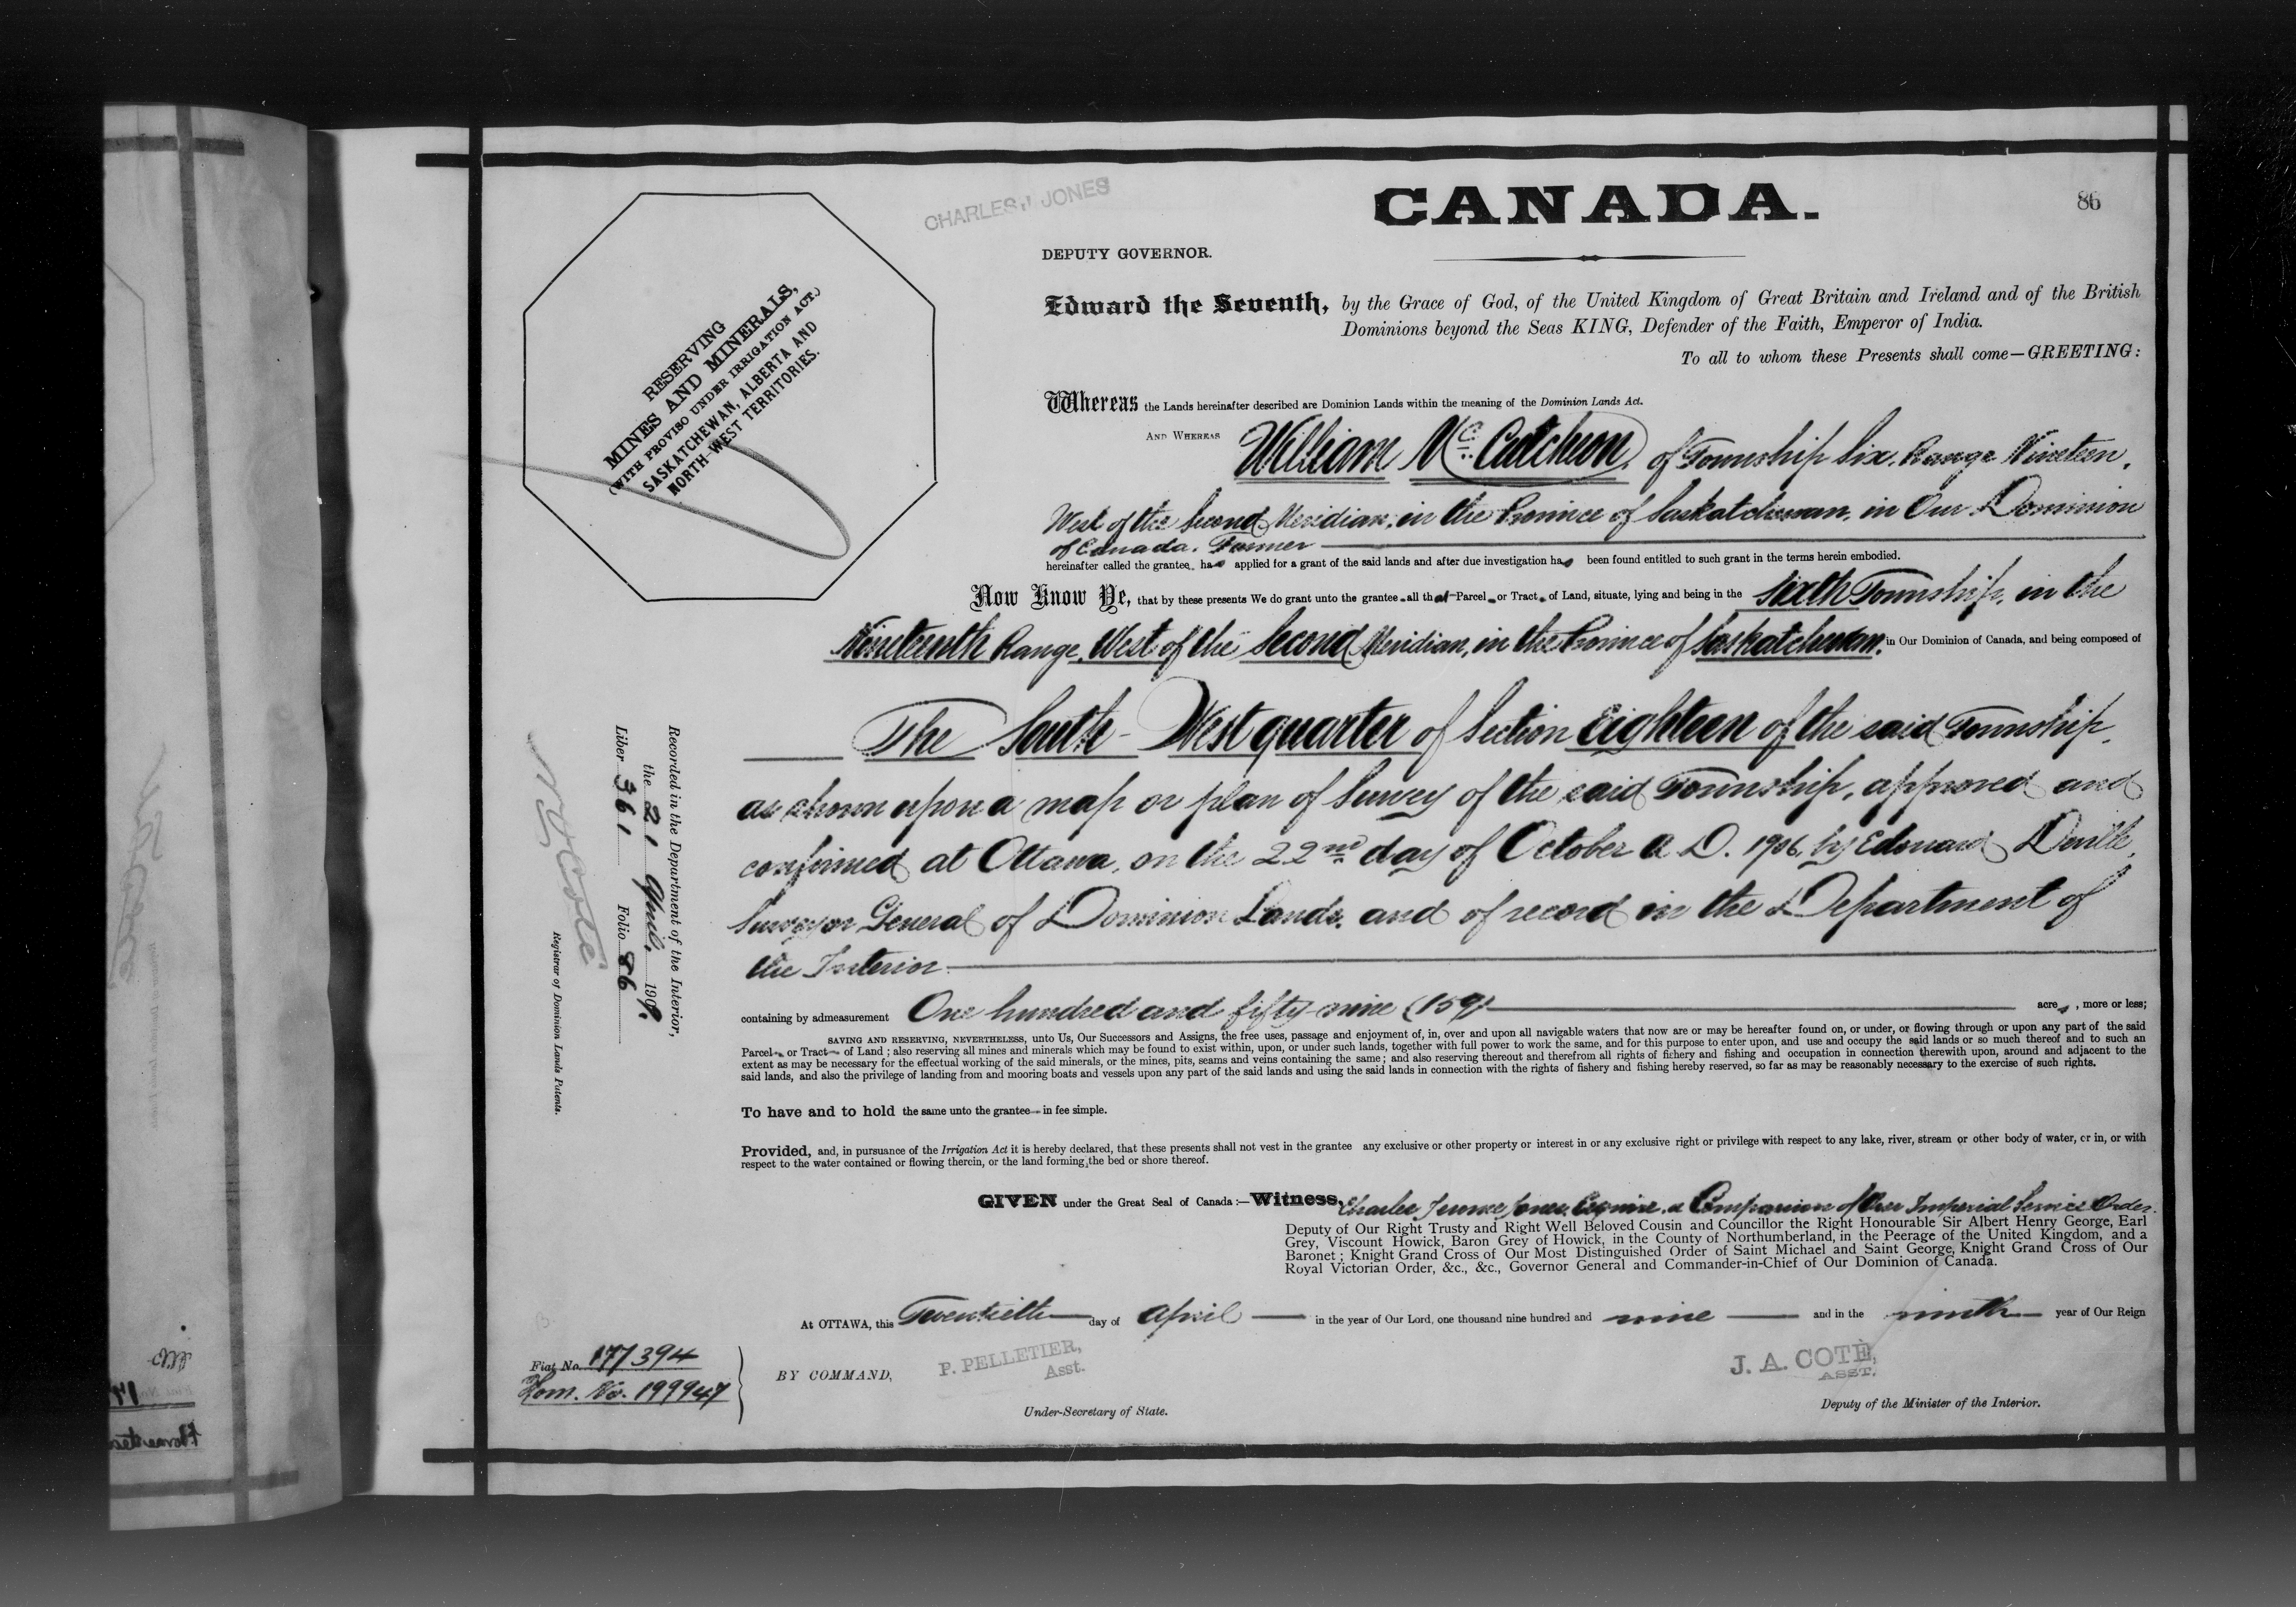 CANADA.
86
CHARLES J JONES
DEPUTY GOVERNOR.
RESERVING
MINES AND MINERALS,
(WITH PROVISO UNDER IRRIGATION ACT.)
SASKATCHEWAN, ALBERTA AND
NORTH-WEST TERRITORIES.
Edward the Seventh, by the Grace of God, of the United Kingdom of Great Britain and Ireland and of the British
Dominions beyond the Seas KING, Defender of the Faith, Emperor of India.
To all to whom these Presents shall come—GREETING:
Whereas the Lands hereinafter described are Dominion Lands within the meaning of the Dominion Lands Act.
AND WHEREAS William Mc Cutcheon, of Township Six, Range Nineteen,
West of the Second Meridian, in the Province of Saskatchewan, in Our Dominion
of Canada, Farmer
hereinafter called the grantee has applied for a grant of the said lands and after due investigation has been found entitled to such grant in the terms herein embodied.
Now Know Ye, that by these presents We do grant unto the grantee all that Parcel or Tract of Land, situate, lying and being in the Sixth Township, in the
Nineteenth Range, West of the Second Meridian, in the Province of Saskatchewan, in Our Dominion of Canada, and being composed of
The South-West quarter of Section Eighteen of the said Township,
as shown upon a map or plan of Survey of the said Township, approved and
confirmed at Ottawa, on the 22nd day of October A.D. 1906, by Edouard Deville,
Surveyor General of Dominion Lands, and of record in the Department of
the Interior
containing by admeasurement One hundred and fifty-nine (159) acres, more or less;
SAVING AND RESERVING, NEVERTHELESS, unto Us, Our Successors and Assigns, the free uses, passage and enjoyment of, in, over and upon all navigable waters that now are or may be hereafter found on, or under, or flowing through or upon any part of the said
Parcel or Tract of Land; also reserving all mines and minerals which may be found to exist within, upon, or under such lands, together with full power to work the same, and for this purpose to enter upon, and use and occupy the said lands or so much thereof and to such an
extent as may be necessary for the effectual working of the said minerals, or the mines, pits, seams and veins containing the same; and also reserving thereout and therefrom all rights of fishery and fishing and occupation in connection therewith upon, around and adjacent to the
said lands, and also the privilege of landing from and mooring boats and vessels upon any part of the said lands and using the said lands in connection with the rights of fishery and fishing hereby reserved, so far as may be reasonably necessary to the exercise of such rights.
To have and to hold the same unto the grantee in fee simple.
Provided, and, in pursuance of the Irrigation Act it is hereby declared, that these presents shall not vest in the grantee any exclusive or other property or interest in or any exclusive right or privilege with respect to any lake, river, stream or other body of water, or in, or with
respect to the water contained or flowing therein, or the land forming the bed or shore thereof.
GIVEN under the Great Seal of Canada:—Witness, Charles Jones, Esquire, a Companion of Our Imperial Service Order.
Deputy of Our Right Trusty and Right Well Beloved Cousin and Councillor the Right Honourable Sir Albert Henry George, Earl
Grey, Viscount Howick, Baron Grey of Howick, in the County of Northumberland, in the Peerage of the United Kingdom, and a
Baronet; Knight Grand Cross of Our Most Distinguished Order of Saint Michael and Saint George, Knight Grand Cross of Our
Royal Victorian Order, &c., &c., Governor General and Commander-in-Chief of Our Dominion of Canada.
At OTTAWA, this Twentieth day of April in the year of Our Lord, one thousand nine hundred and nine and in the ninth year of Our Reign
BY COMMAND,
P. PELLETIER,
Asst.
Under-Secretary of State.
J. A. COTÉ,
ASST.
Deputy of the Minister of the Interior.
Fiat No. 177394
Hom. No. 199947
Recorded in the Department of the Interior,
the 21 April. 1909.
Liber 361 Folio 86
N O Coté
Registrar of Dominion Lands Patents.